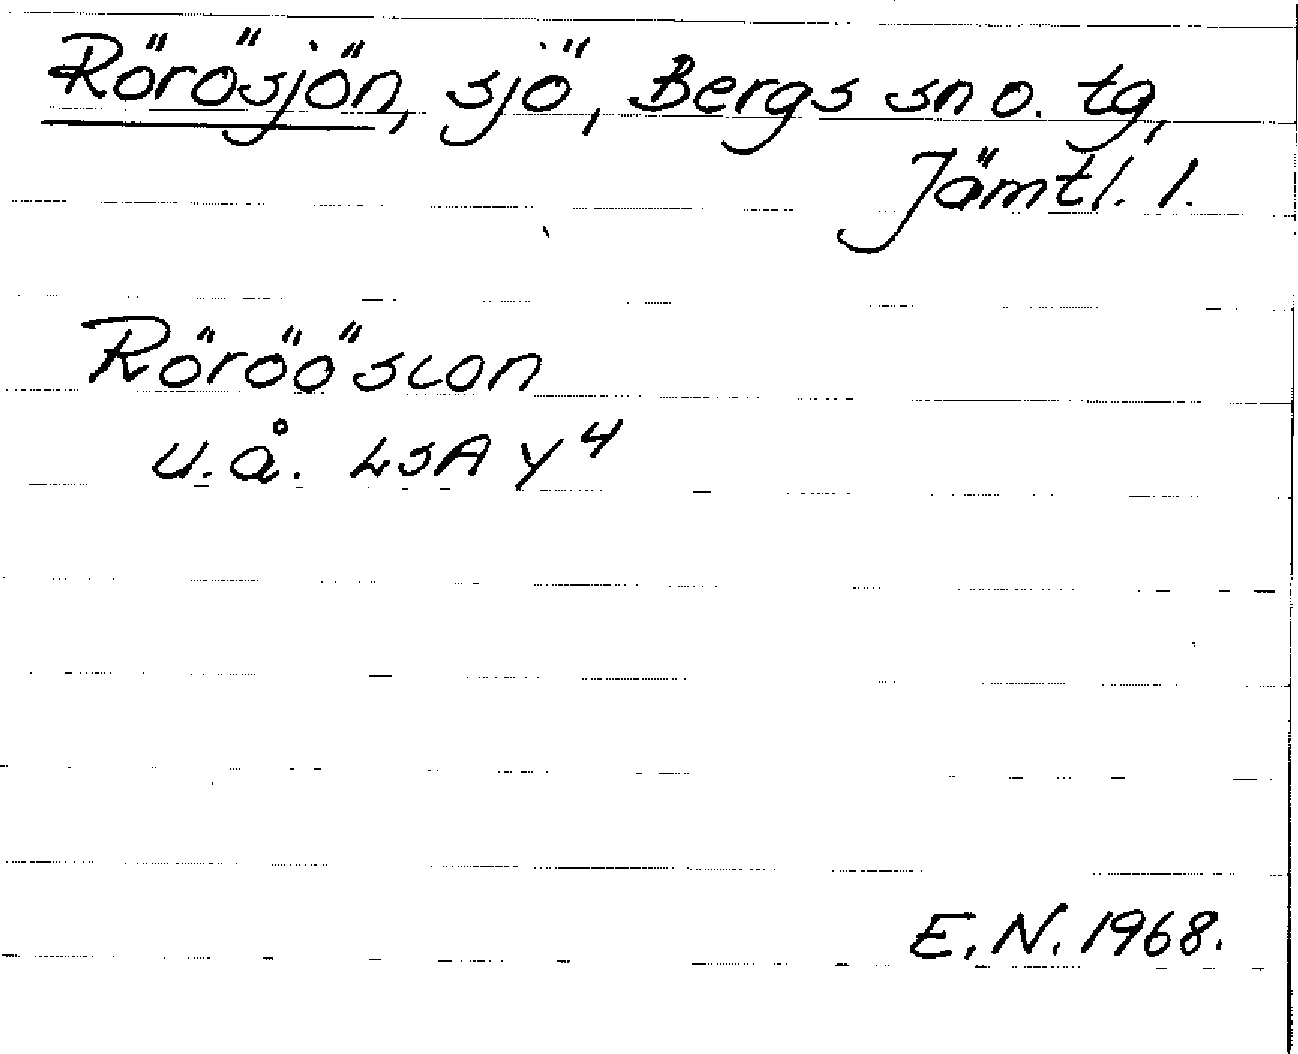 Rörösjön, sjö, Bergs sn o. tg,
Jämtl. l.
Röröösıon
u.å. LSA Y4
E.N. 1968.